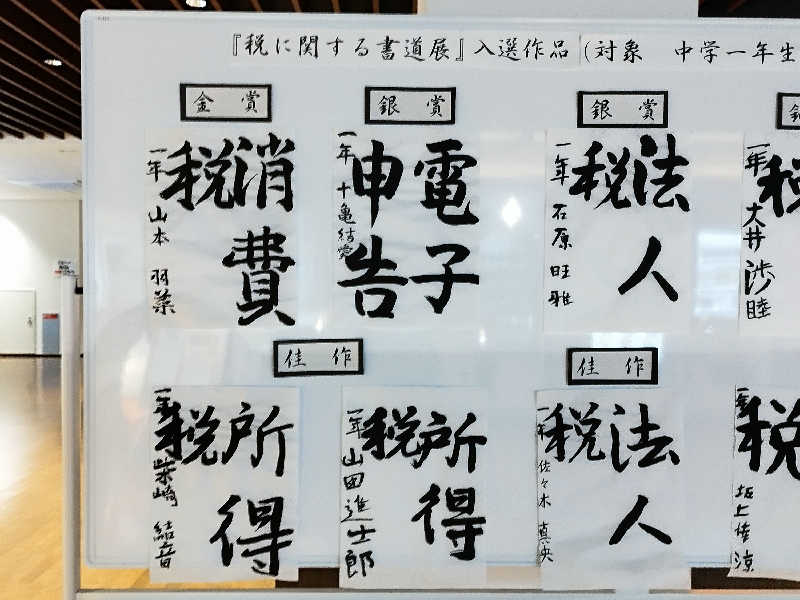 『税に関する書道展』入選作品(対象　中学一年生
金　賞
消費
税
一年　山本　羽菜
銀　賞
電子
申告
一年　十亀結愛
銀　賞
法人
税
一年　石原　旺雅
税
一年　大井　渉睦
佳　作
所得
税
一年　柴崎　結音
所得
税
一年　山田進士郎
佳　作
法人
税
一年　佐々木　真央
税
坂上佳涼